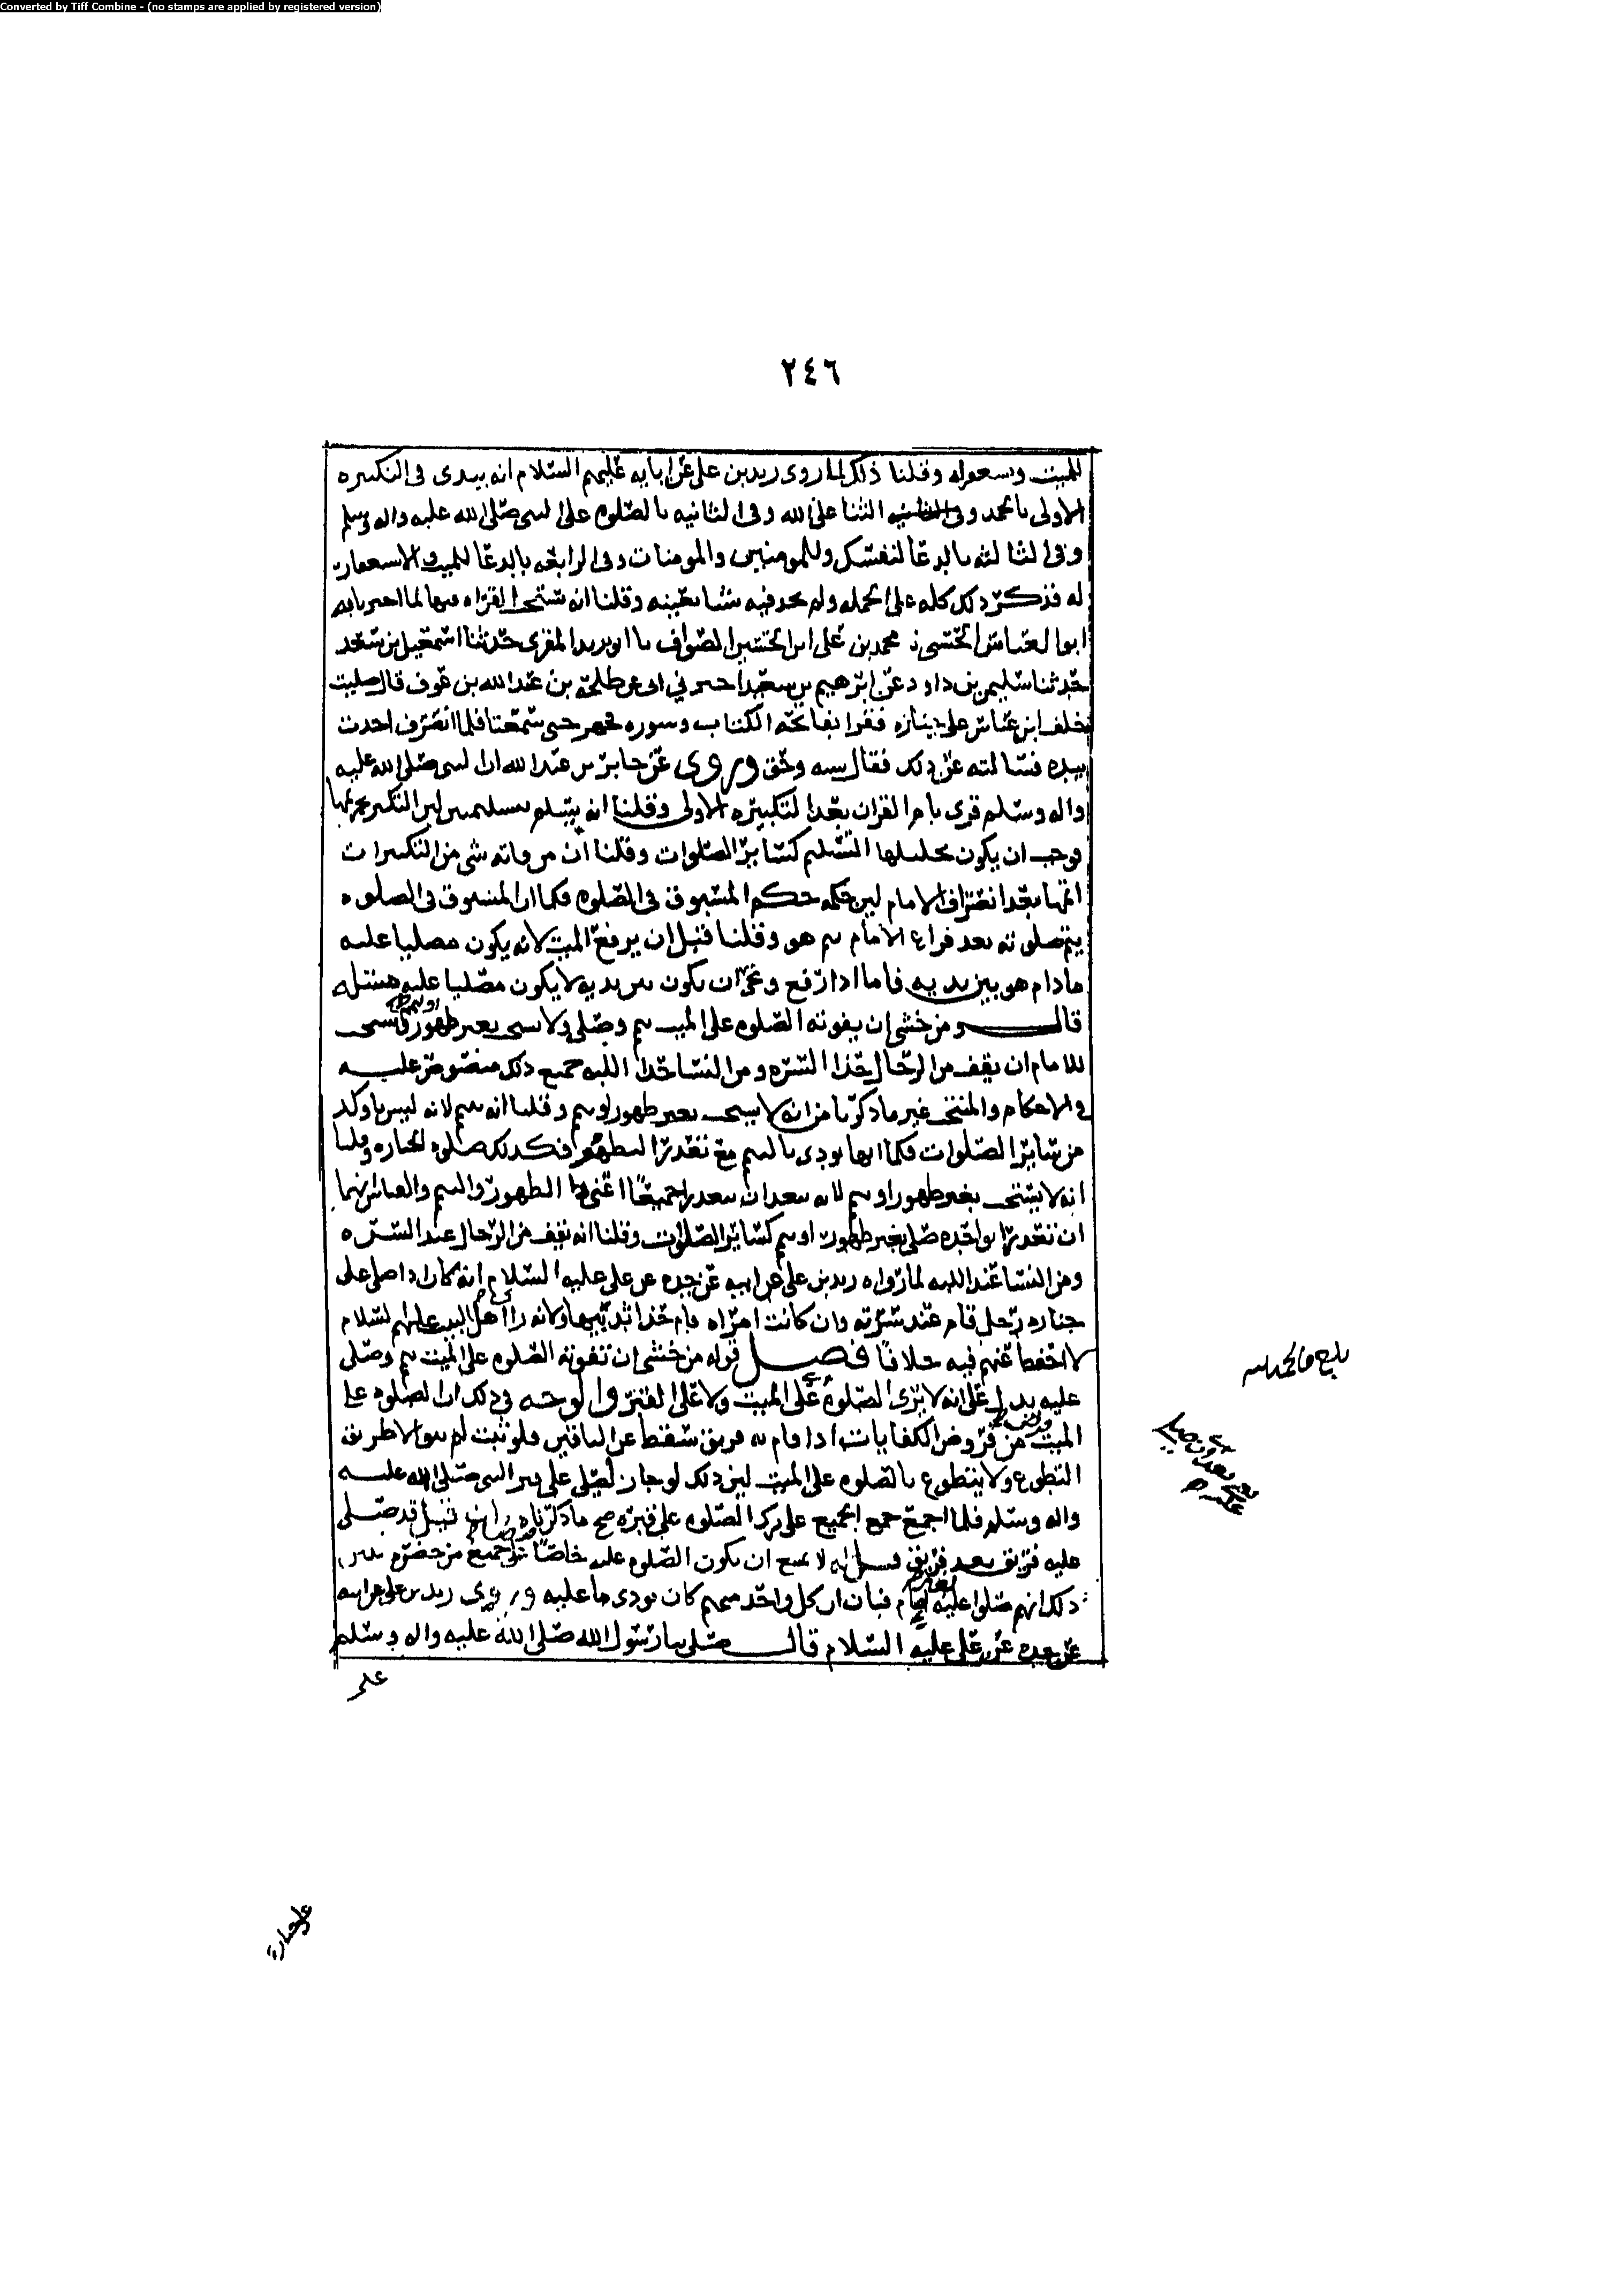 Converted by Tiff Combine - (no stamps are applied by registered version)
٢٤٦
للميت ويستغفر له وقلنا ذلك لما روى زيد بن علي عن ابايه عليهم السلام انه يبدى في التكبيره
الاولى بالحمد والثنا على الله وفي الثانيه بالصلوه على النبي صلى الله عليه واله وسلم
وفي الثالثه بالدعا لنفسك وللمومنين والمومنات وفي الرابعه بالدعا للميت والاستغفار
له فذكر ذلك كله على الجمله ولم يحد فيه شيا بعينه وقلنا انه يستحب القراه فيها لما اخبرنا به
ابو العباس الحسني محمد بن علي ابن الحسين الصواف نا ابو يزيد المقري حدثنا اسمعيل بن سعد
حدثنا سليمن بن داود عن ابرهيم بن سعد اخبرني ابي عن طلحة بن عبدالله بن عوف قال صليت
خلف ابن عباس على جنازه فقرا بفاتحه الكتاب وسوره جهر حتى سمعنا فلما انصرف اخذت
بيده فسالته عن ذلك فقال سنه وحق وروى عن جابر بن عبدالله ان النبي صلى الله عليه
واله وسلم قرى بام القران بعد التكبيره الاولى وقلنا انه يسلم تسليمتين لان التكبير تحريمها
فوجب ان يكون تحليلها التسليم كسائر الصلوات وقلنا ان من فاته شي من التكبيرات
اتمها بعد انصراف الامام لان حكمه حكم المسبوق في الصلوه فكما ان المسبوق في الصلوه
يتم صلوته بعد فراغ الامام تم هو وقلنا قبل ان يرفع الميت لانه يكون مصليا عليه
مادام هو بين يديه فاما اذا رفع وعن ان يكون بين يديه لا يكون مصليا عليه مسئله
قال ومن خشي ان يفوته الصلوه على الميت تيمم وصلى ولا يستحب بغير طهور او تيمم ويستحب
للامام ان يقف من الرجال حذا السره ومن النسا حذا اللبه جميع ذلك منصوص عليه
في الاحكام والمنتخب غير ما ذكرنا من انه لا يستحب بغير طهور او تيمم وقلنا انه تيمم لانه ليس باوكد
من سائر الصلوات فكما انها تودى بالتيمم مع تعذر التطهر فكذلك صلوه الجنازه وقلنا
انه لا يستحب بغير طهور او تيمم لانه يبعد ان يتعذرا جميعا اعني الطهور والتيمم والقياس فيهما
ان تعذرا بواحده صلى بغير طهور او تيمم كسائر الصلوات وقلنا انه يقف من الرجال عند السره
ومن النسا عند اللبه لما رواه زيد بن علي عن ابيه عن جده عن علي عليه السلام انه كان اذا صلى على
جنازه رجل قام عند سرته وان كانت امراه قام حذا ثدييها ولانه راي اهل البيت عليهم السلام
لا احفظ عنهم فيه خلافا فصل قوله من خشي ان تفوته الصلوه على الميت تيمم وصلى
عليه يدل على انه لا يرى الصلوه على الميت ولا على القبر والوجه في ذلك ان الصلوه على
الميت من فروض الكفايات اذا قام به فريق سقط عن الباقين فلو ثبت لم يبق الا طريق
التطوع ولا يتطوع بالصلوه على الميت لان ذلك لو جاز لصلي على قبر النبي صلى الله عليه
واله وسلم فلما اجمع الجميع على ترك الصلوه على قبره صح ما ذكرناه فان قيل قد صلى
عليه فريق بعد فريق قيل له لا يمتنع ان يكون الصلوه عليه خاصا فرض جميع من حضرهم
ذلك انهم صلوا عليه بغير امام فبان ان كل واحد منهم كان يودى ما عليه وروى زيد بن علي عن ابيه
عن جده عن علي عليه السلام قال صلى بنا رسول الله صلى الله عليه واله وسلم
على
بلغ
على جنازة